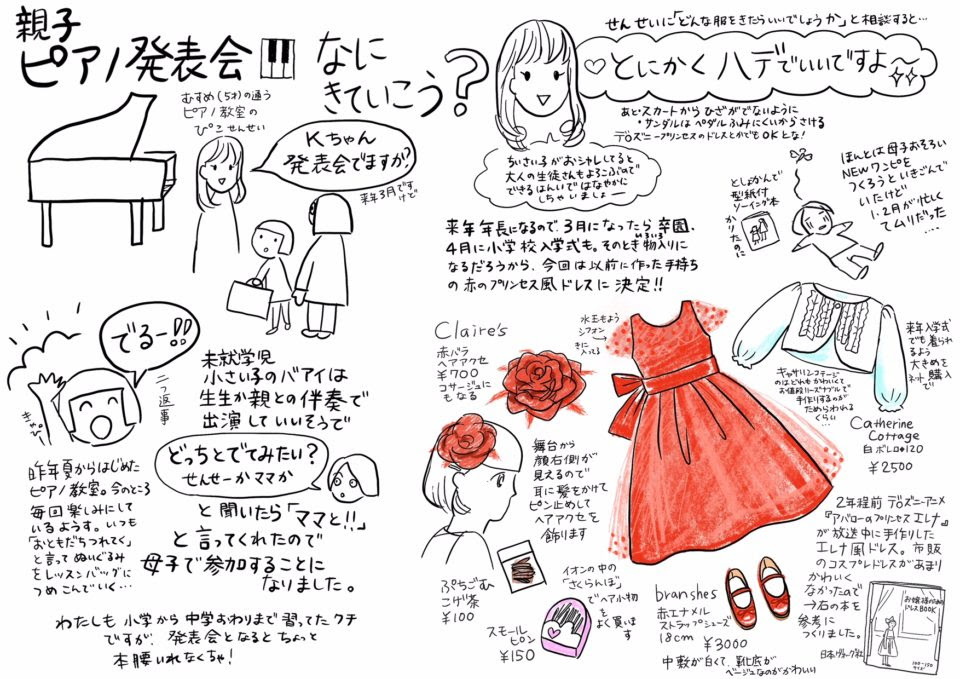 親子
ピアノ発表会
なに
きていこう?
むすめ(5才)の通う
ピアノ教室の
ぴこせんせい
Kちゃん
発表会でますか?
来年3月です
けど
でるー!!
二つ返事
未就学児
小さい子のバアイは
先生か親との伴奏で
出演していいそうで
どっちとでてみたい?
せんせーかママか
と聞いたら「ママと!!」
と言ってくれたので
母子で参加することに
なりました。
昨年夏からはじめた
ピアノ教室。今のところ
毎回楽しみにして
いるようす。いつも
「おともだちつれてく」
と言ってぬいぐるみ
をレッスンバッグに
つめこんでいく…
わたしも小学から中学おわりまで習ってたクチ
ですが、発表会となるとちょっと
本腰いれなくちゃ!
せんせいに「どんな服をきたらいいでしょうか」と相談すると…
♡とにかくハデでいいですよ〜
あと・スカートからひざがでないように
・サンダルはペダルふみにくいからさける
デ○ズニープリンセスのドレスとかでもOKとな!
ちいさい子がおシャレしてると
大人の生徒さんもよろこぶので
できるはんいではなやかに
しちゃいましょー
来年年長になるので、3月になったら卒園、
4月に小学校入学式も。そのとき物入りに
いろいろ
なるだろうから、今回は以前に作った手持ち
の赤のプリンセス風ドレスに決定!!
としょかんで
型紙付
ソーイング本
かりたのに
ほんとは母子おそろい
NEWワンピを
つくろうといきごんで
いたけど
1・2月が忙しく
てムリだった
….
Claire's
赤バラ
ヘアアクセ
¥700
コサージュに
もなる
水玉もよう
シフォン
きに
入ってる
来年入学式
でも着られ
るよう
大きめを
ネットで購入
キャサリンコテージ
のはどれもかわいくて
お値段リーズナブルで
手作りするのが
ためらわれる
くらい…
Catherine
Cottage
白ボレロ120
¥2500
舞台から
顔右側が
見えるので
耳に髪をかけて
ピン止めして
ヘアアクセを
飾ります
ぷちごむ
こげ茶
¥100
イオンの中の
「さくらんぼ」
でヘア小物を
よく買います
スモール
ピン
¥150
branshes
赤エナメル
ストラップシューズ
18cm
¥3000
中敷が白くて、靴底が
ベージュなのがかわいい
2年程前デ○ズニーアニメ
『アバローのプリンセス エレナ』
が放送中に手作りした
エレナ風ドレス。市販
のコスプレドレスがあまり
かわいく
なかったので
→右の本を
参考に
つくりました。
お嬢様のための
ドレスBOOK
100-150
サイズ